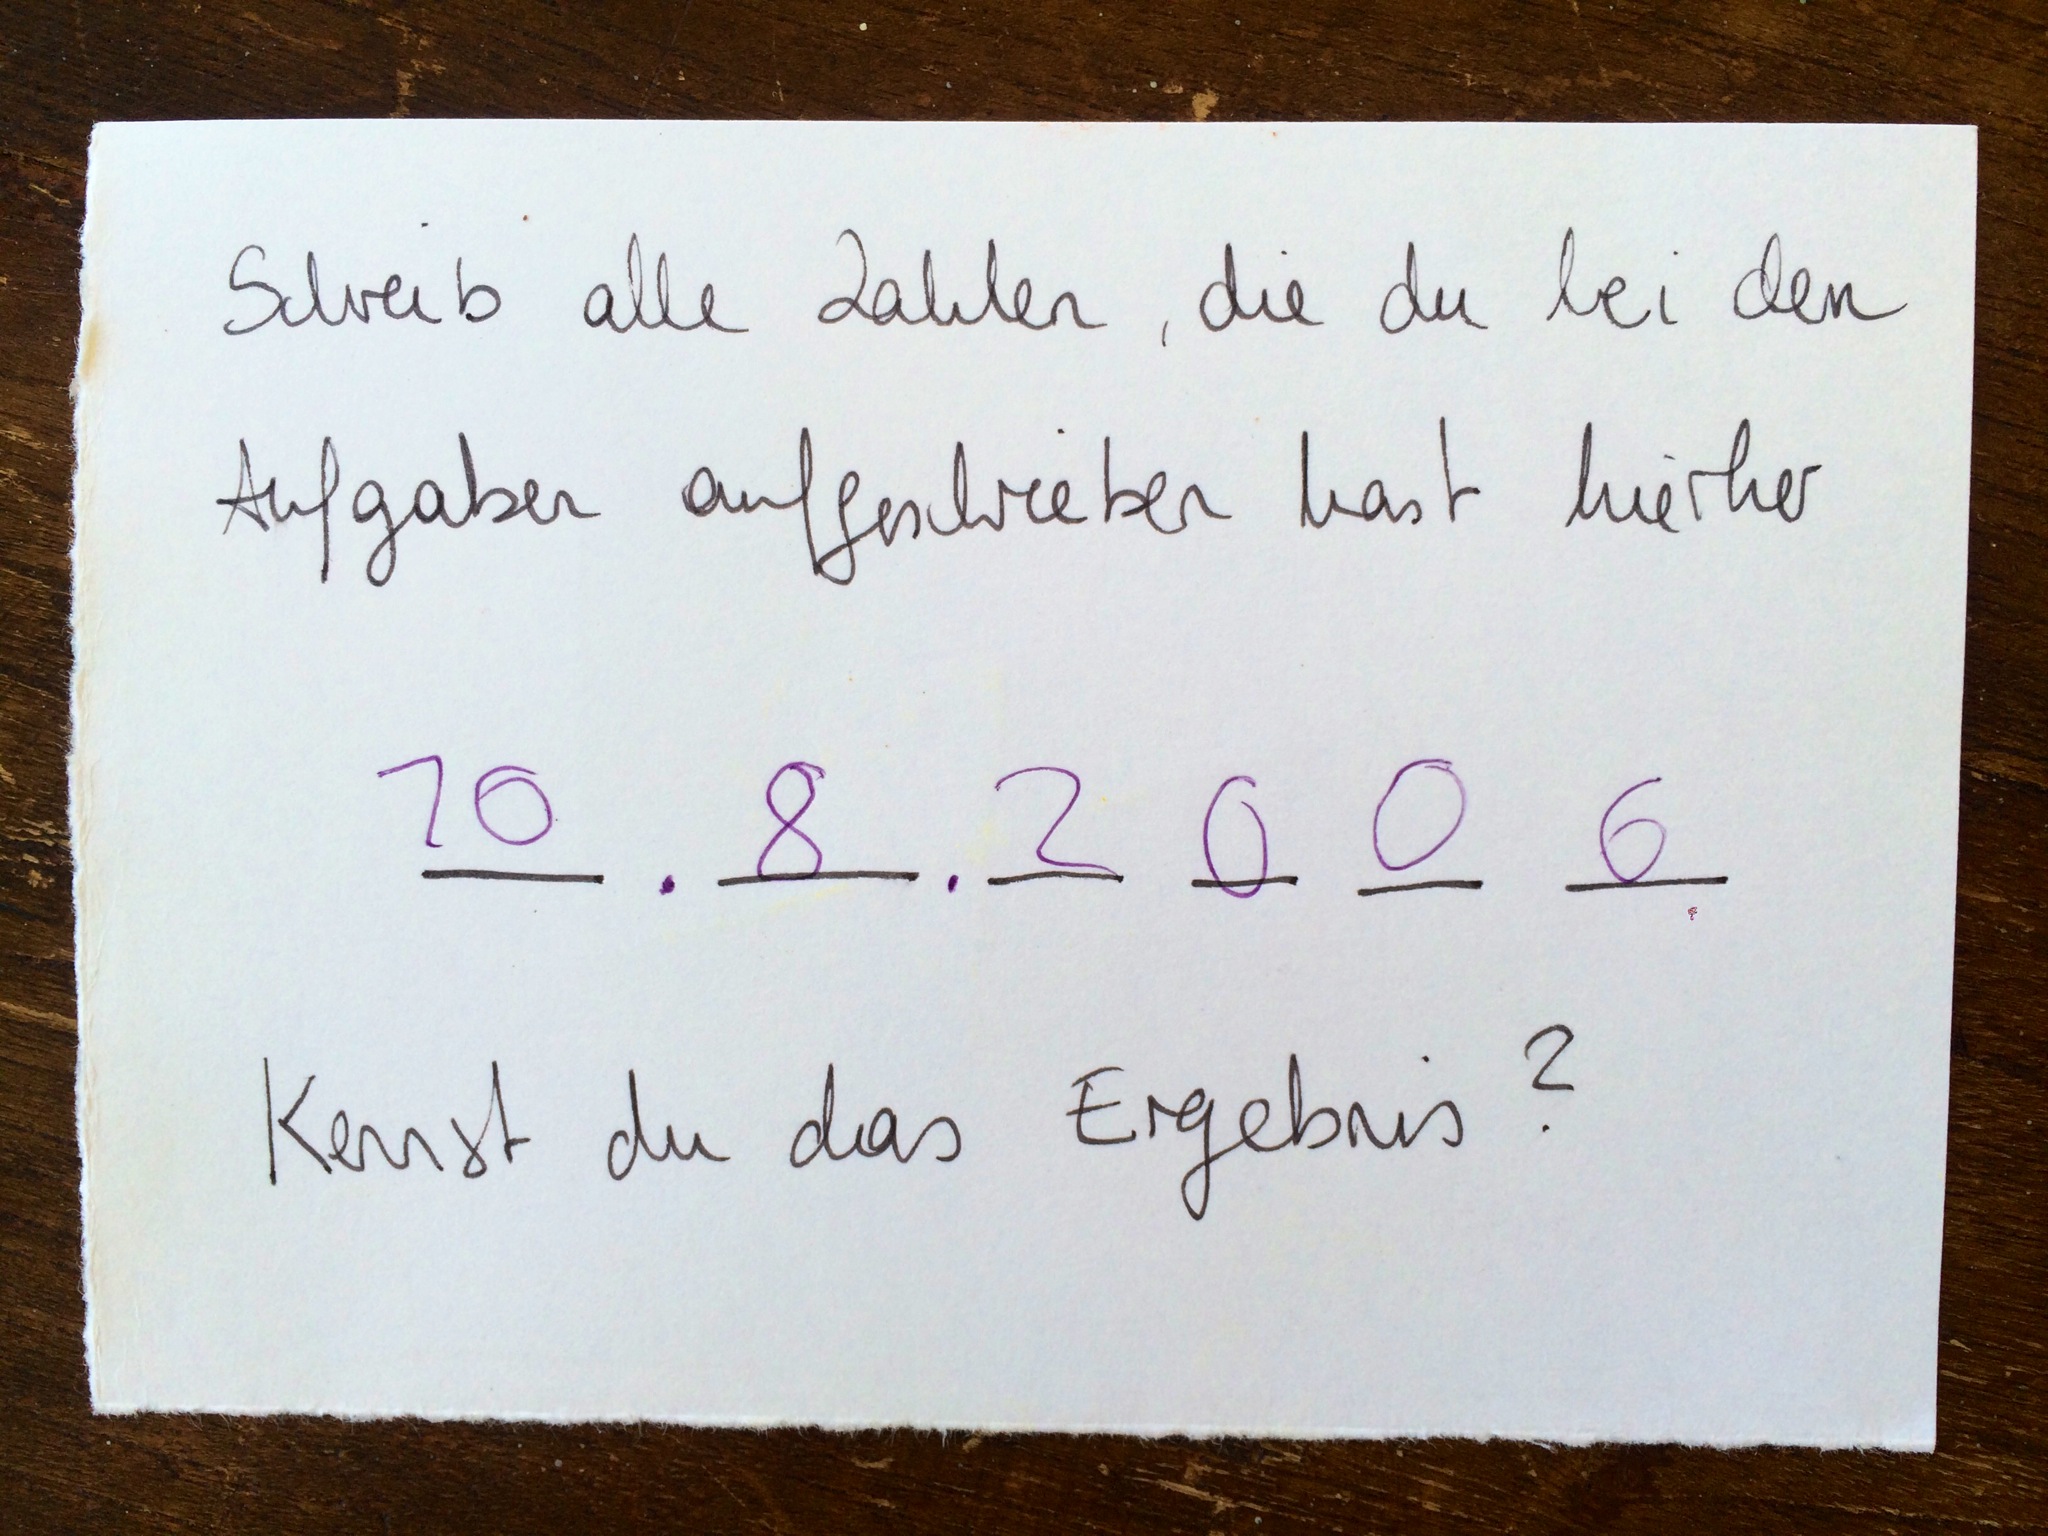 Schreib alle Zahlen, die du bei den
Aufgaben aufgeschrieben hast hierher
10.8.2006
Kennst du das Ergebnis?